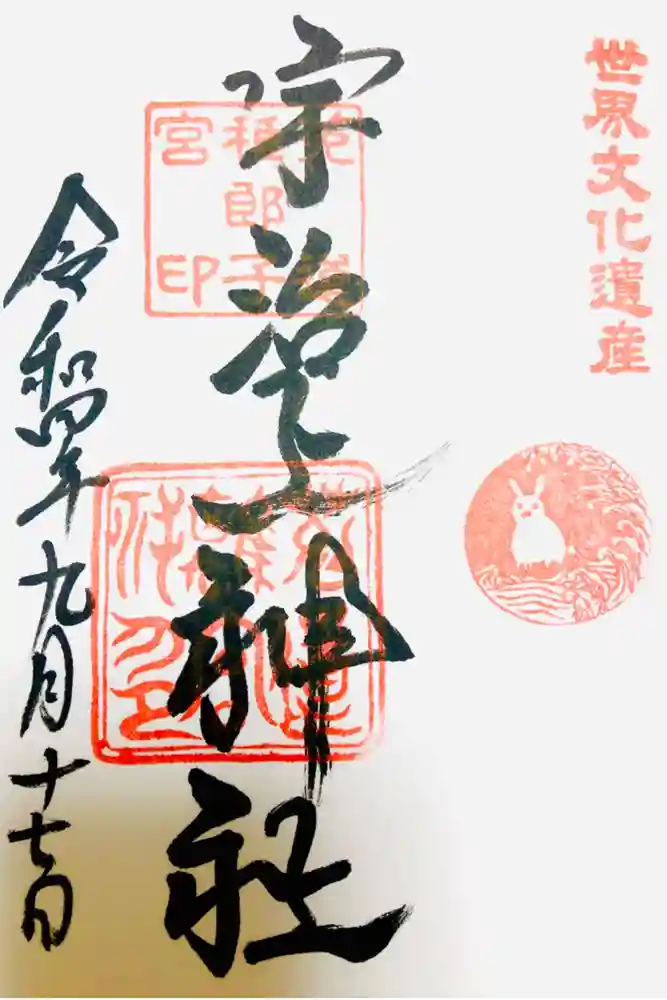 世界文化遺産
宇治上神社
菟道
稚郎子
宮印
令和四年九月十七日